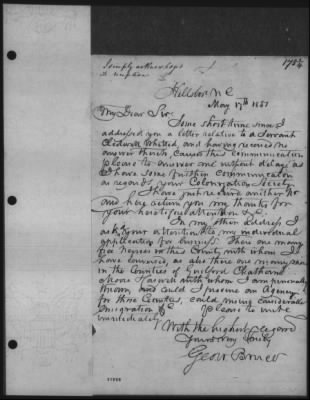 simply acknowledge
& inform
17 5/4
Hillsboro N C
May 17th 1851
My Dear Sir,
Some short time since I
addressed you a letter relative to a Servant
and having received no
answer thereto, causes this Communication
please to answer and without delay as
I have some further communication
as regards your Colonization Society
I have just received another No
and here return you my thanks for
your hospitable attention &c.
In my other address I
ask your attention to my individual
application for business. There are many
free negroes in this County with whom I
have conversed, as also there are many more
in the Counties of Guilford Chatham
Moore Caswell with whom I am personally
known and could I procure an Agency
for those Counties, could bring considerable
Emigration &c. please to write
immediately
With the highest regard
Yours very truly
Geo W Bruce